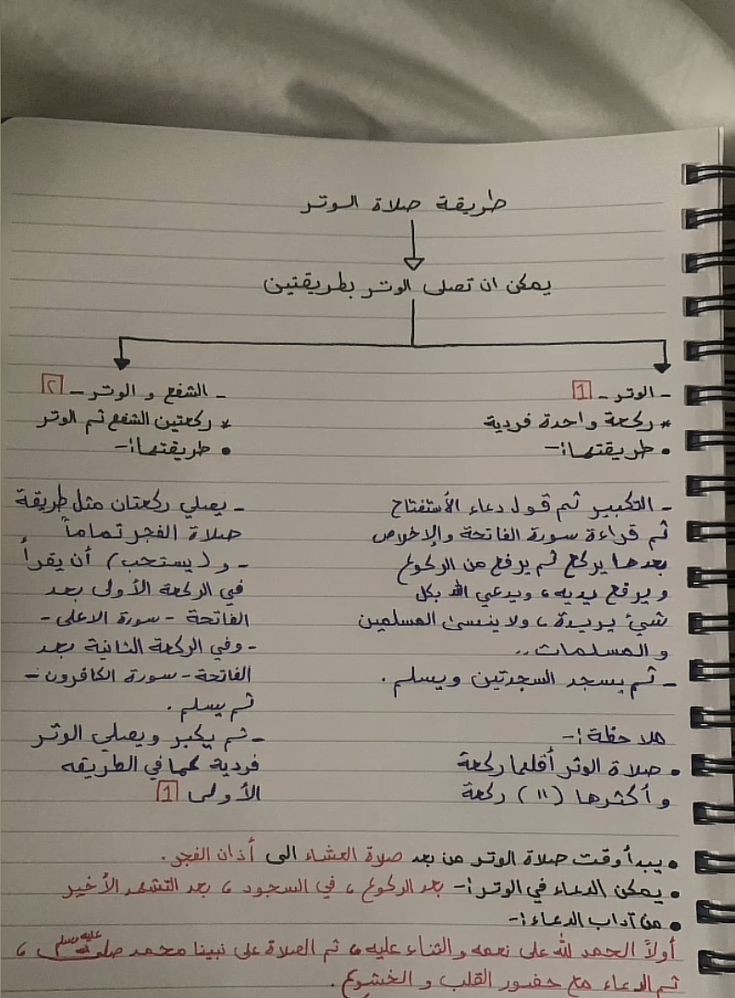 طريقة صلاة الوتر
يمكن ان تصلى الوتر بطريقتين
- الوتر - 1
* ركعة واحدة فردية
• طريقتها:-
- التكبير ثم قول دعاء الأستفتاح
ثم قراءة سورة الفاتحة والإخلاص
بعدها يركع ثم يرفع من الركوع
ويرفع يديه، ويدعي الله بكل
شيئ يريدة، ولا ينسى المسلمين
والمسلمات..
- ثم يسجد السجدتين ويسلم.
ملاحظة:-
• صلاة الوتر أقلها ركعة
وأكثرها (١١) ركعة
- الشفع و الوتر - ٢
* ركعتين الشفع ثم الوتر
• طريقتها:-
- يصلي ركعتان مثل طريقة
صلاة الفجر تماماً
- و(يستحب) أن يقرأ
في الركعة الأولى بعد
الفاتحة - سورة الاعلى -
- وفي الركعة الثانية بعد
الفاتحة - سورة الكافرون -
ثم يسلم.
- ثم يكبر ويصلي الوتر
فردية كما في الطريقه
الأولى 1
• يبدأ وقت صلاة الوتر من بعد صلاة العشاء الى أذان الفجر.
• يمكن الدعاء في الوتر:- بعد الركوع، في السجود، بعد التشهد الأخير
• من آداب الدعاء:-
أولاً الحمد لله على نعمه والثناء عليه، ثم الصلاة على نبينا محمد صلى الله عليه وسلم،
ثم الدعاء مع حضور القلب و الخشوع.